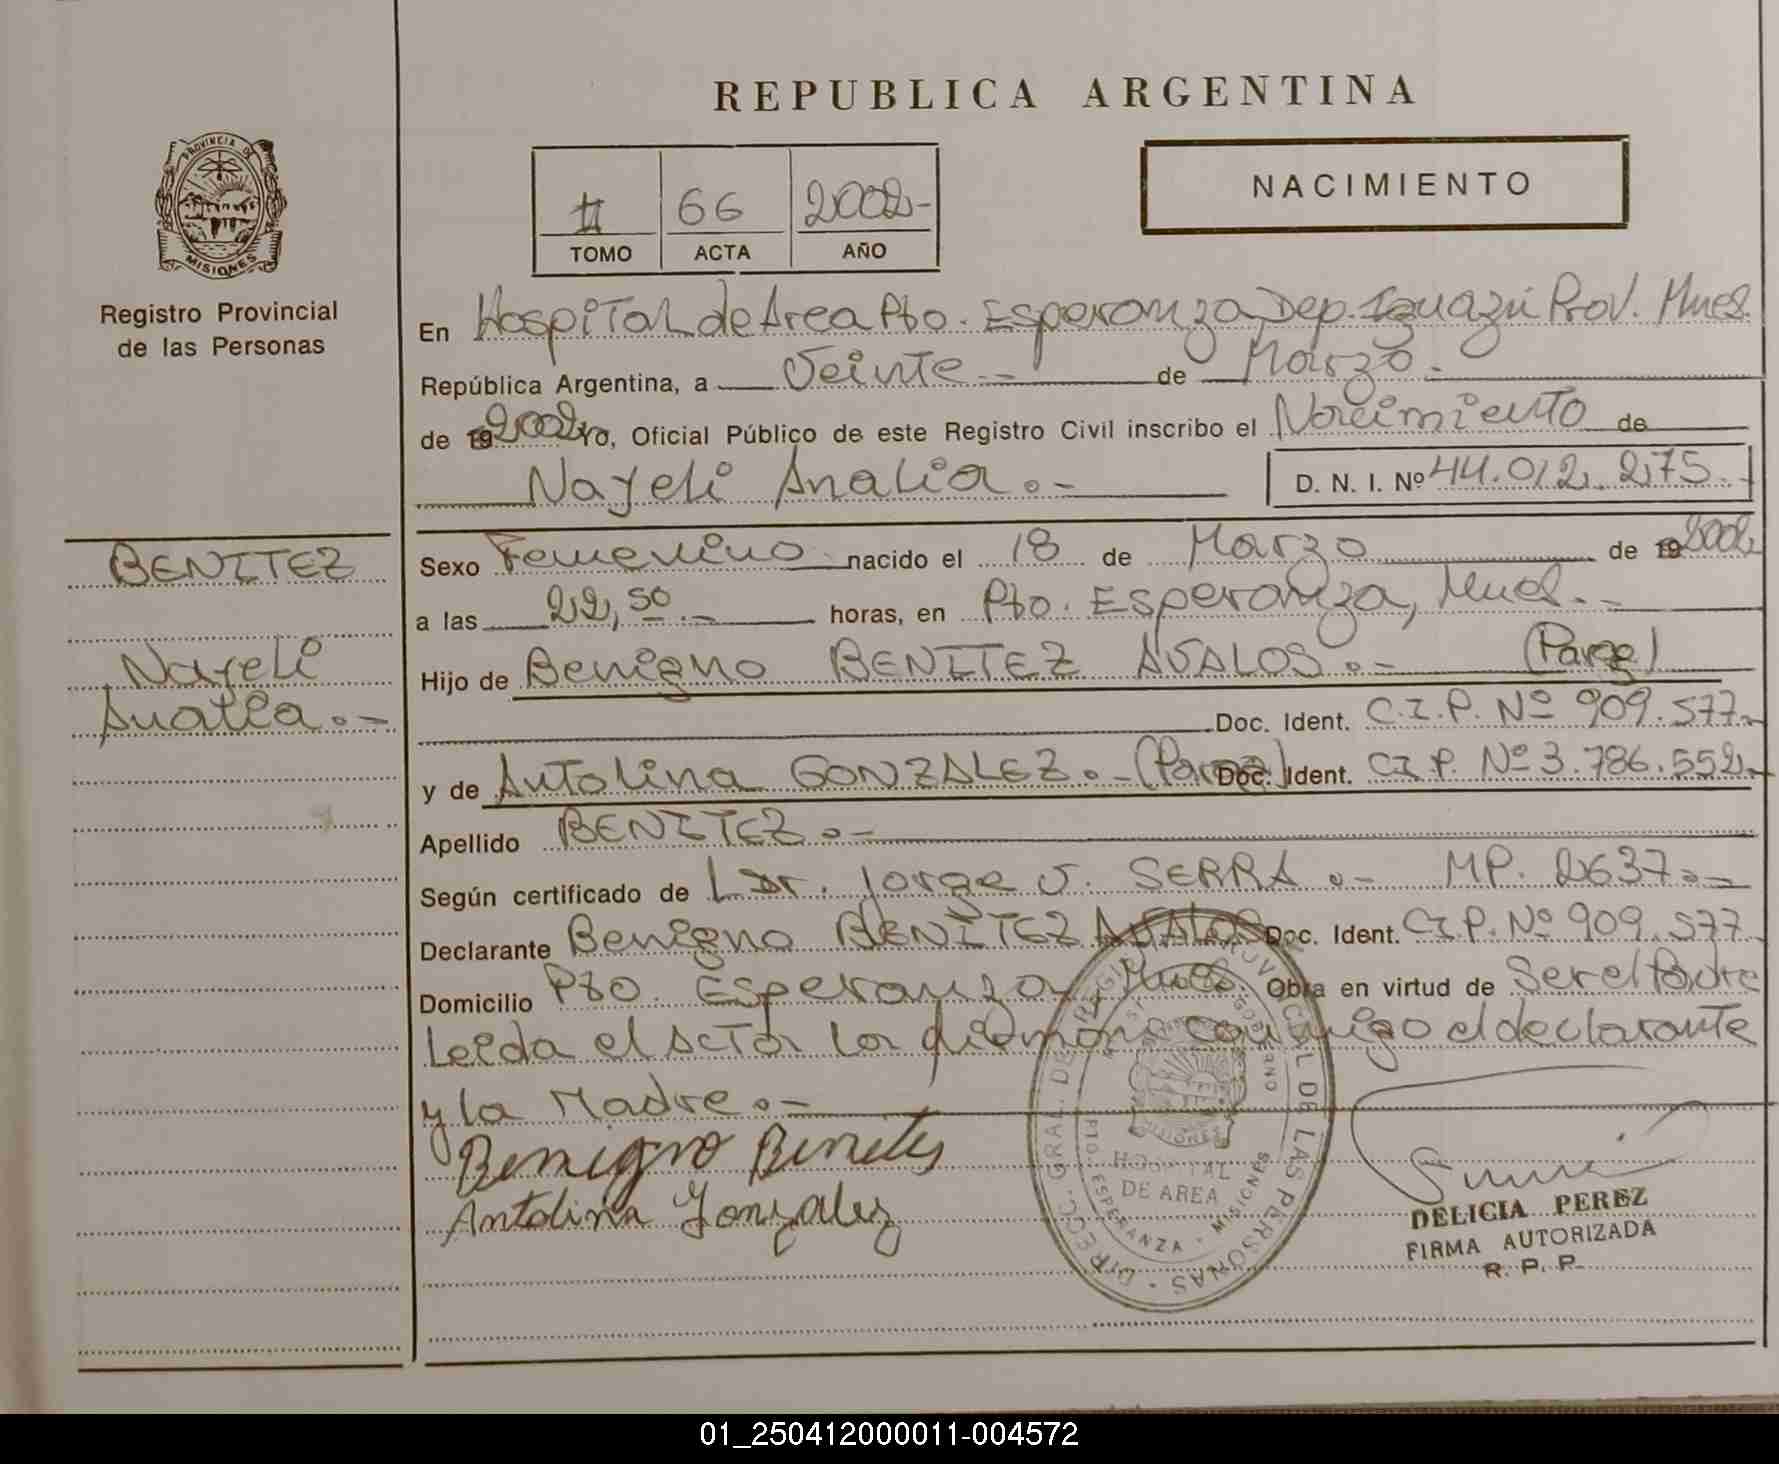 REPUBLICA ARGENTINA
PROVINCIA DE
MISIONES
Registro Provincial
de las Personas
II 66 2002-
TOMO ACTA AÑO
NACIMIENTO
En Hospital de Area Pto. Esperanza, Dep. Iguazú Prov. Mnes.
República Argentina, a Veinte.- de Marzo.-
de 19 2002 yo, Oficial Público de este Registro Civil inscribo el Nacimiento de
Nayeli Analia.- D. N. I. Nº 44.012.275.-
BENITEZ
Nayeli
Analia.-
Sexo Femenino nacido el 18 de Marzo de 19 2002
a las 22,50.- horas, en Pto. Esperanza, Mnes.-
Hijo de Benigno BENITEZ AVALOS.- (Parag)
Doc. Ident. C.I.P. Nº 909.577.-
y de Antolina GONZALEZ.- (Parag) Doc. Ident. C.I.P. Nº 3.786.552.-
Apellido BENITEZ.-
Según certificado de Dr. Jorge V. SERRA.- MP. 2637.-
Declarante Benigno BENITEZ AVALOS Doc. Ident. C.I.P. Nº 909.577
Domicilio Pto. Esperanza, Mnes. Obra en virtud de Ser el Padre
Leida el acta la firman conmigo el declarante
y la Madre.-
Benigno Benites
Antolina Gonzalez
HOSPITAL
DE AREA
PTO. ESPERANZA - MISIONES
DELICIA PEREZ
FIRMA AUTORIZADA
R. P. P.
01_250412000011-004572